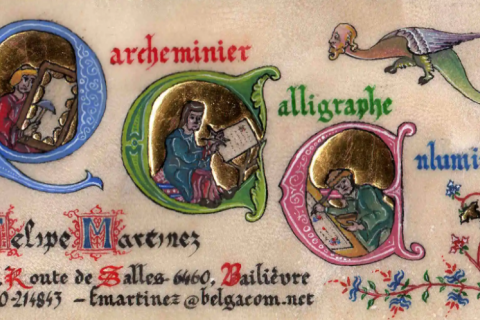 Parcheminier
Calligraphe
Enlumi
Felipe Martinez
Route de Salles 6460, Bailièvre
0-214843 – Fmartinez@belgacom.net